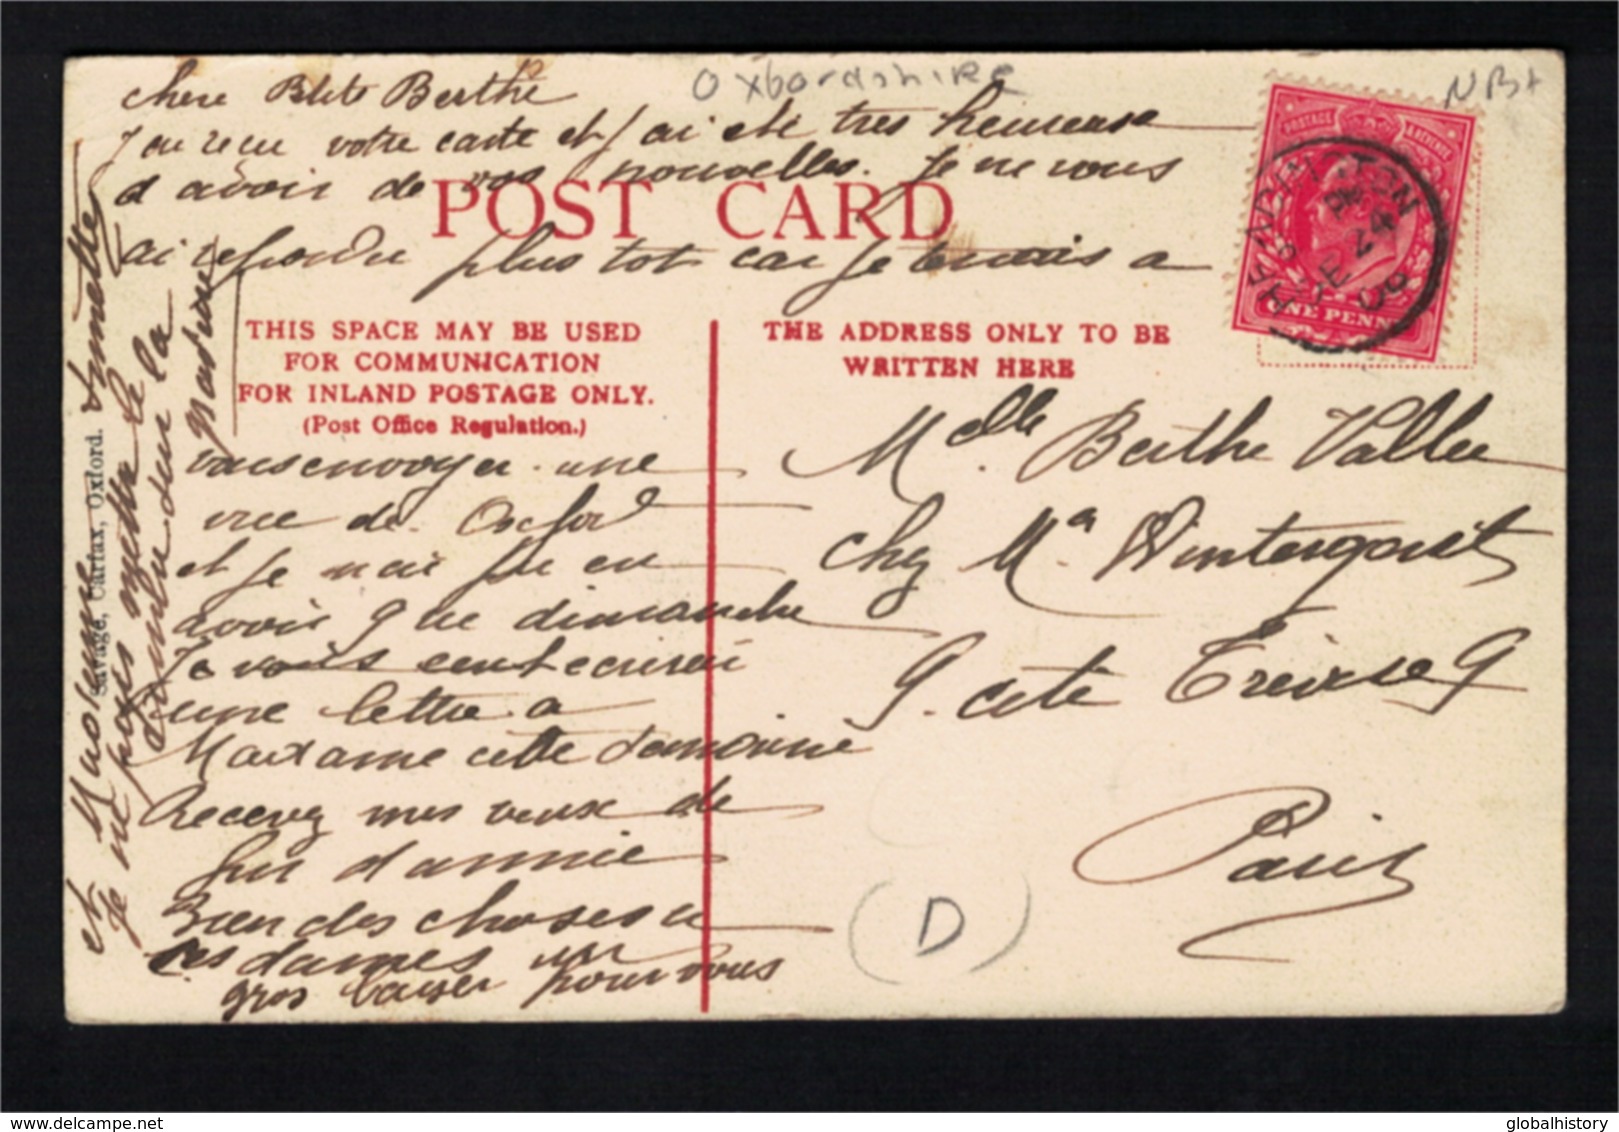 Oxbordshire
NB+
chere Ptite Berthe
J ai recu votre carte et J ai ete tres heureuse
d avoir de vos nouvelles. Je ne vous
POST CARD
ai repondu plus tot car je tenais a
THIS SPACE MAY BE USED
FOR COMMUNICATION
FOR INLAND POSTAGE ONLY.
(Post Office Regulation.)
vous envoyer une
vue de Oxford
et je n ai pu en
avoir que dimanche
Je vous ecrirai
une lettre a
Madame cette
Recevez mes veux de
d annie
Bien des choses a
ces dames un
gros baiser pour vous
et
Je ne
la
Savage, Carfax, Oxford.
THE ADDRESS ONLY TO BE
WRITTEN HERE
Melle Berthe Vallee
chez Ma
9 cité Trévise 9
Paris
(D)
POSTAGE & REVENUE
ONE PENNY
PM
DE 24
06
globalhistory